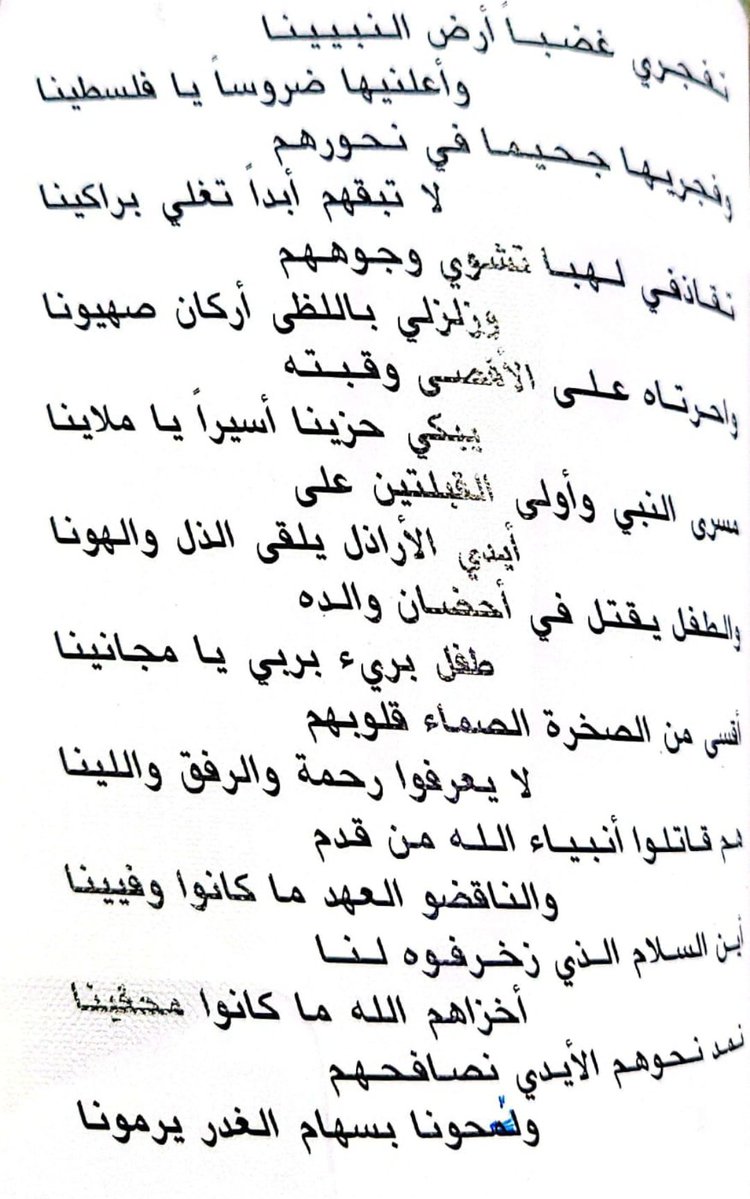 تفجري غضباً أرض النبيينا
وأعلنيها ضروساً يا فلسطينا
وفجريها جحيما في نحورهم
لا تبقهم أبداً تغلي براكينا
تقاذفي لهبا تشوي وجوههم
وزلزلي باللظى أركان صهيونا
واحرتاه على الأقصى وقبته
يبكي حزينا أسيراً يا ملاينا
مسرى النبي وأولى القبلتين على
أيدي الأراذل يلقى الذل والهونا
والطفل يقتل في أحضان والده
طفل بريء بربي يا مجانينا
أقسى من الصخرة الصماء قلوبهم
لا يعرفوا رحمة والرفق واللينا
هم قاتلوا أنبياء الله من قدم
والناقضو العهد ما كانوا وفيينا
أين السلام الذي زخرفوه لنا
أخزاهم الله ما كانوا محقينا
نمد نحوهم الأيدي نصافحهم
بسهام الغدر يرمونا